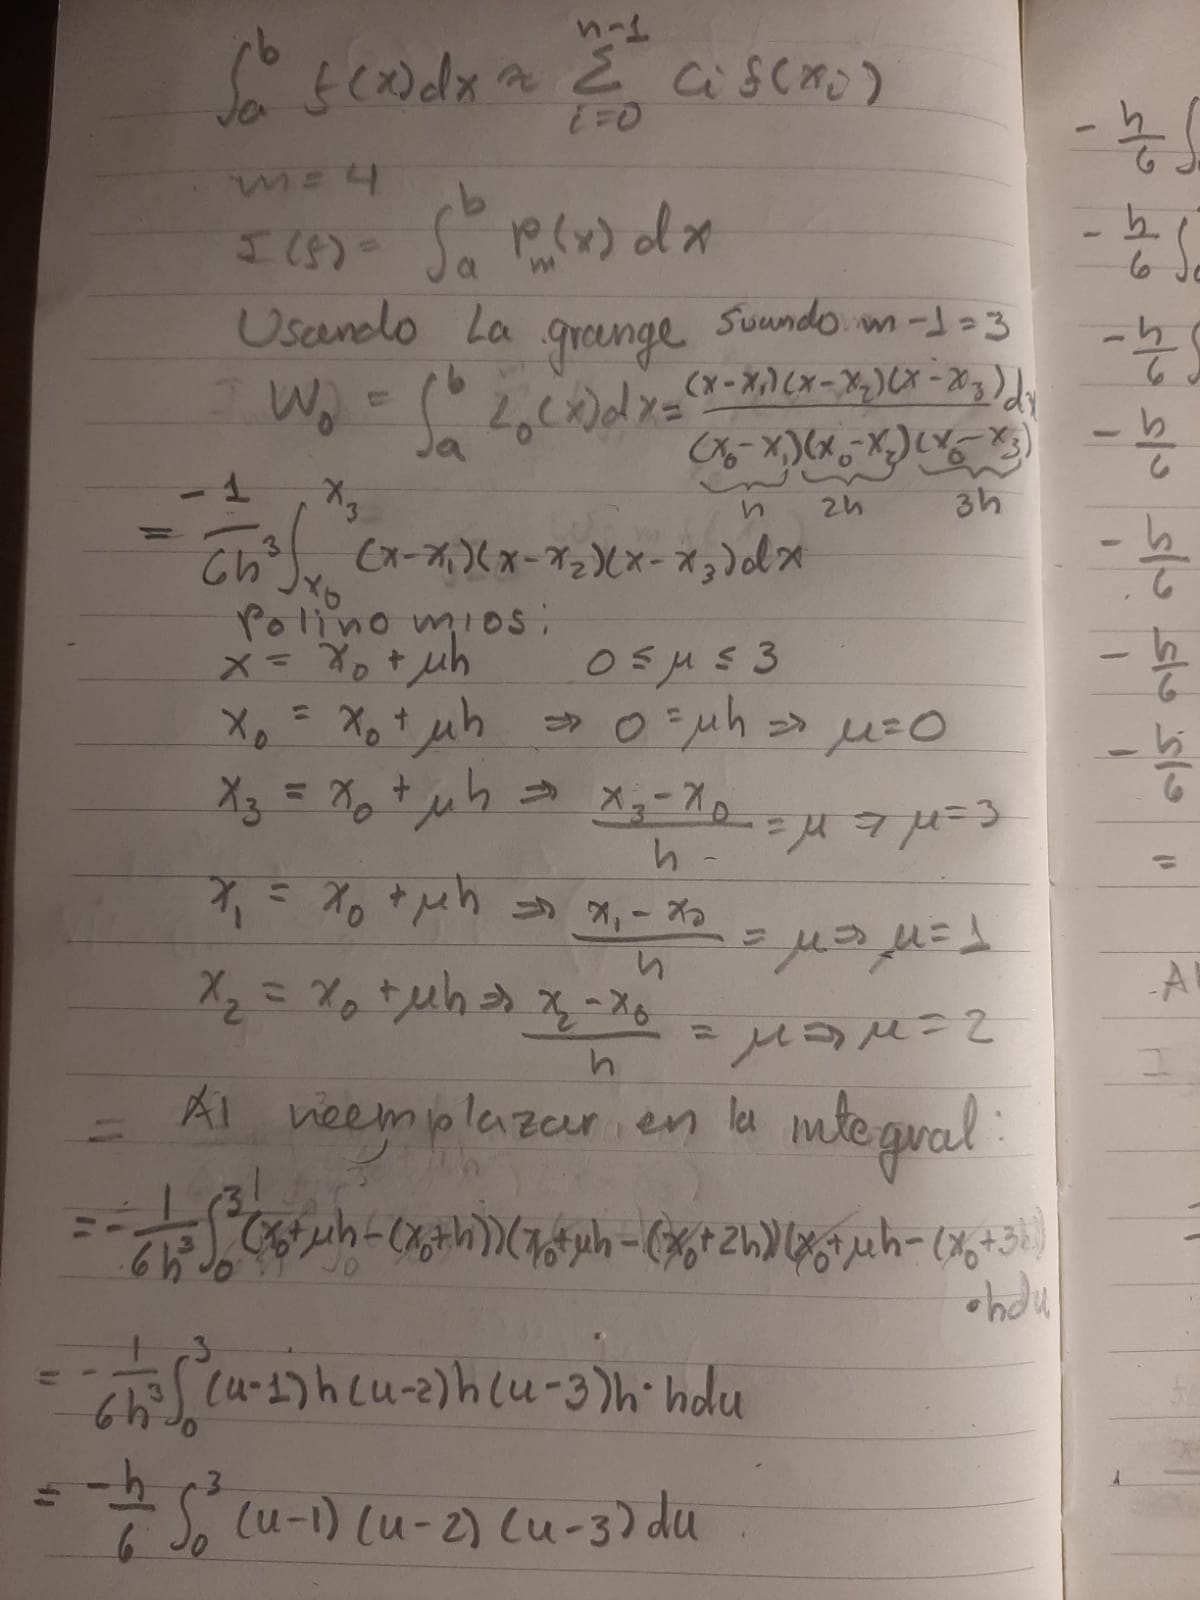 ∫_a^b f(x)dx ≈ Σ_{i=0}^{n-1} Ci f(xi)
m = 4
I(f) = ∫_a^b P_m(x) dx
Usando La grange Suando m-1=3
W₀ = ∫_a^b L₀(x)dx = (x-x₁)(x-x₂)(x-x₃)dx / (x₀-x₁)(x₀-x₂)(x₀-x₃)
h 2h 3h
= -1/6h³ ∫_{x₀}^{x₃} (x-x₁)(x-x₂)(x-x₃)dx
Polinomios:
x = x₀ + μh 0 ≤ μ ≤ 3
x₀ = x₀ + μh ⇒ 0 = μh ⇒ μ=0
x₃ = x₀ + μh ⇒ (x₃-x₀)/h = μ ⇒ μ=3
x₁ = x₀ + μh ⇒ (x₁-x₀)/h = μ ⇒ μ=1
x₂ = x₀ + μh ⇒ (x₂-x₀)/h = μ ⇒ μ=2
= Al reemplazar en la integral:
= -1/6h³ ∫_0^3 (x₀+μh-(x₀+h))(x₀+μh-(x₀+2h))(x₀+μh-(x₀+3h)
·hdμ
= -1/6h³ ∫_0^3 (u-1)h(u-2)h(u-3)h·hdu
= -h/6 ∫_0^3 (u-1)(u-2)(u-3)du
-h/6 ∫
-h/6 ∫
-h/6 ∫
-h/6
-h/6
-h/6
-h/6
=
Al
I